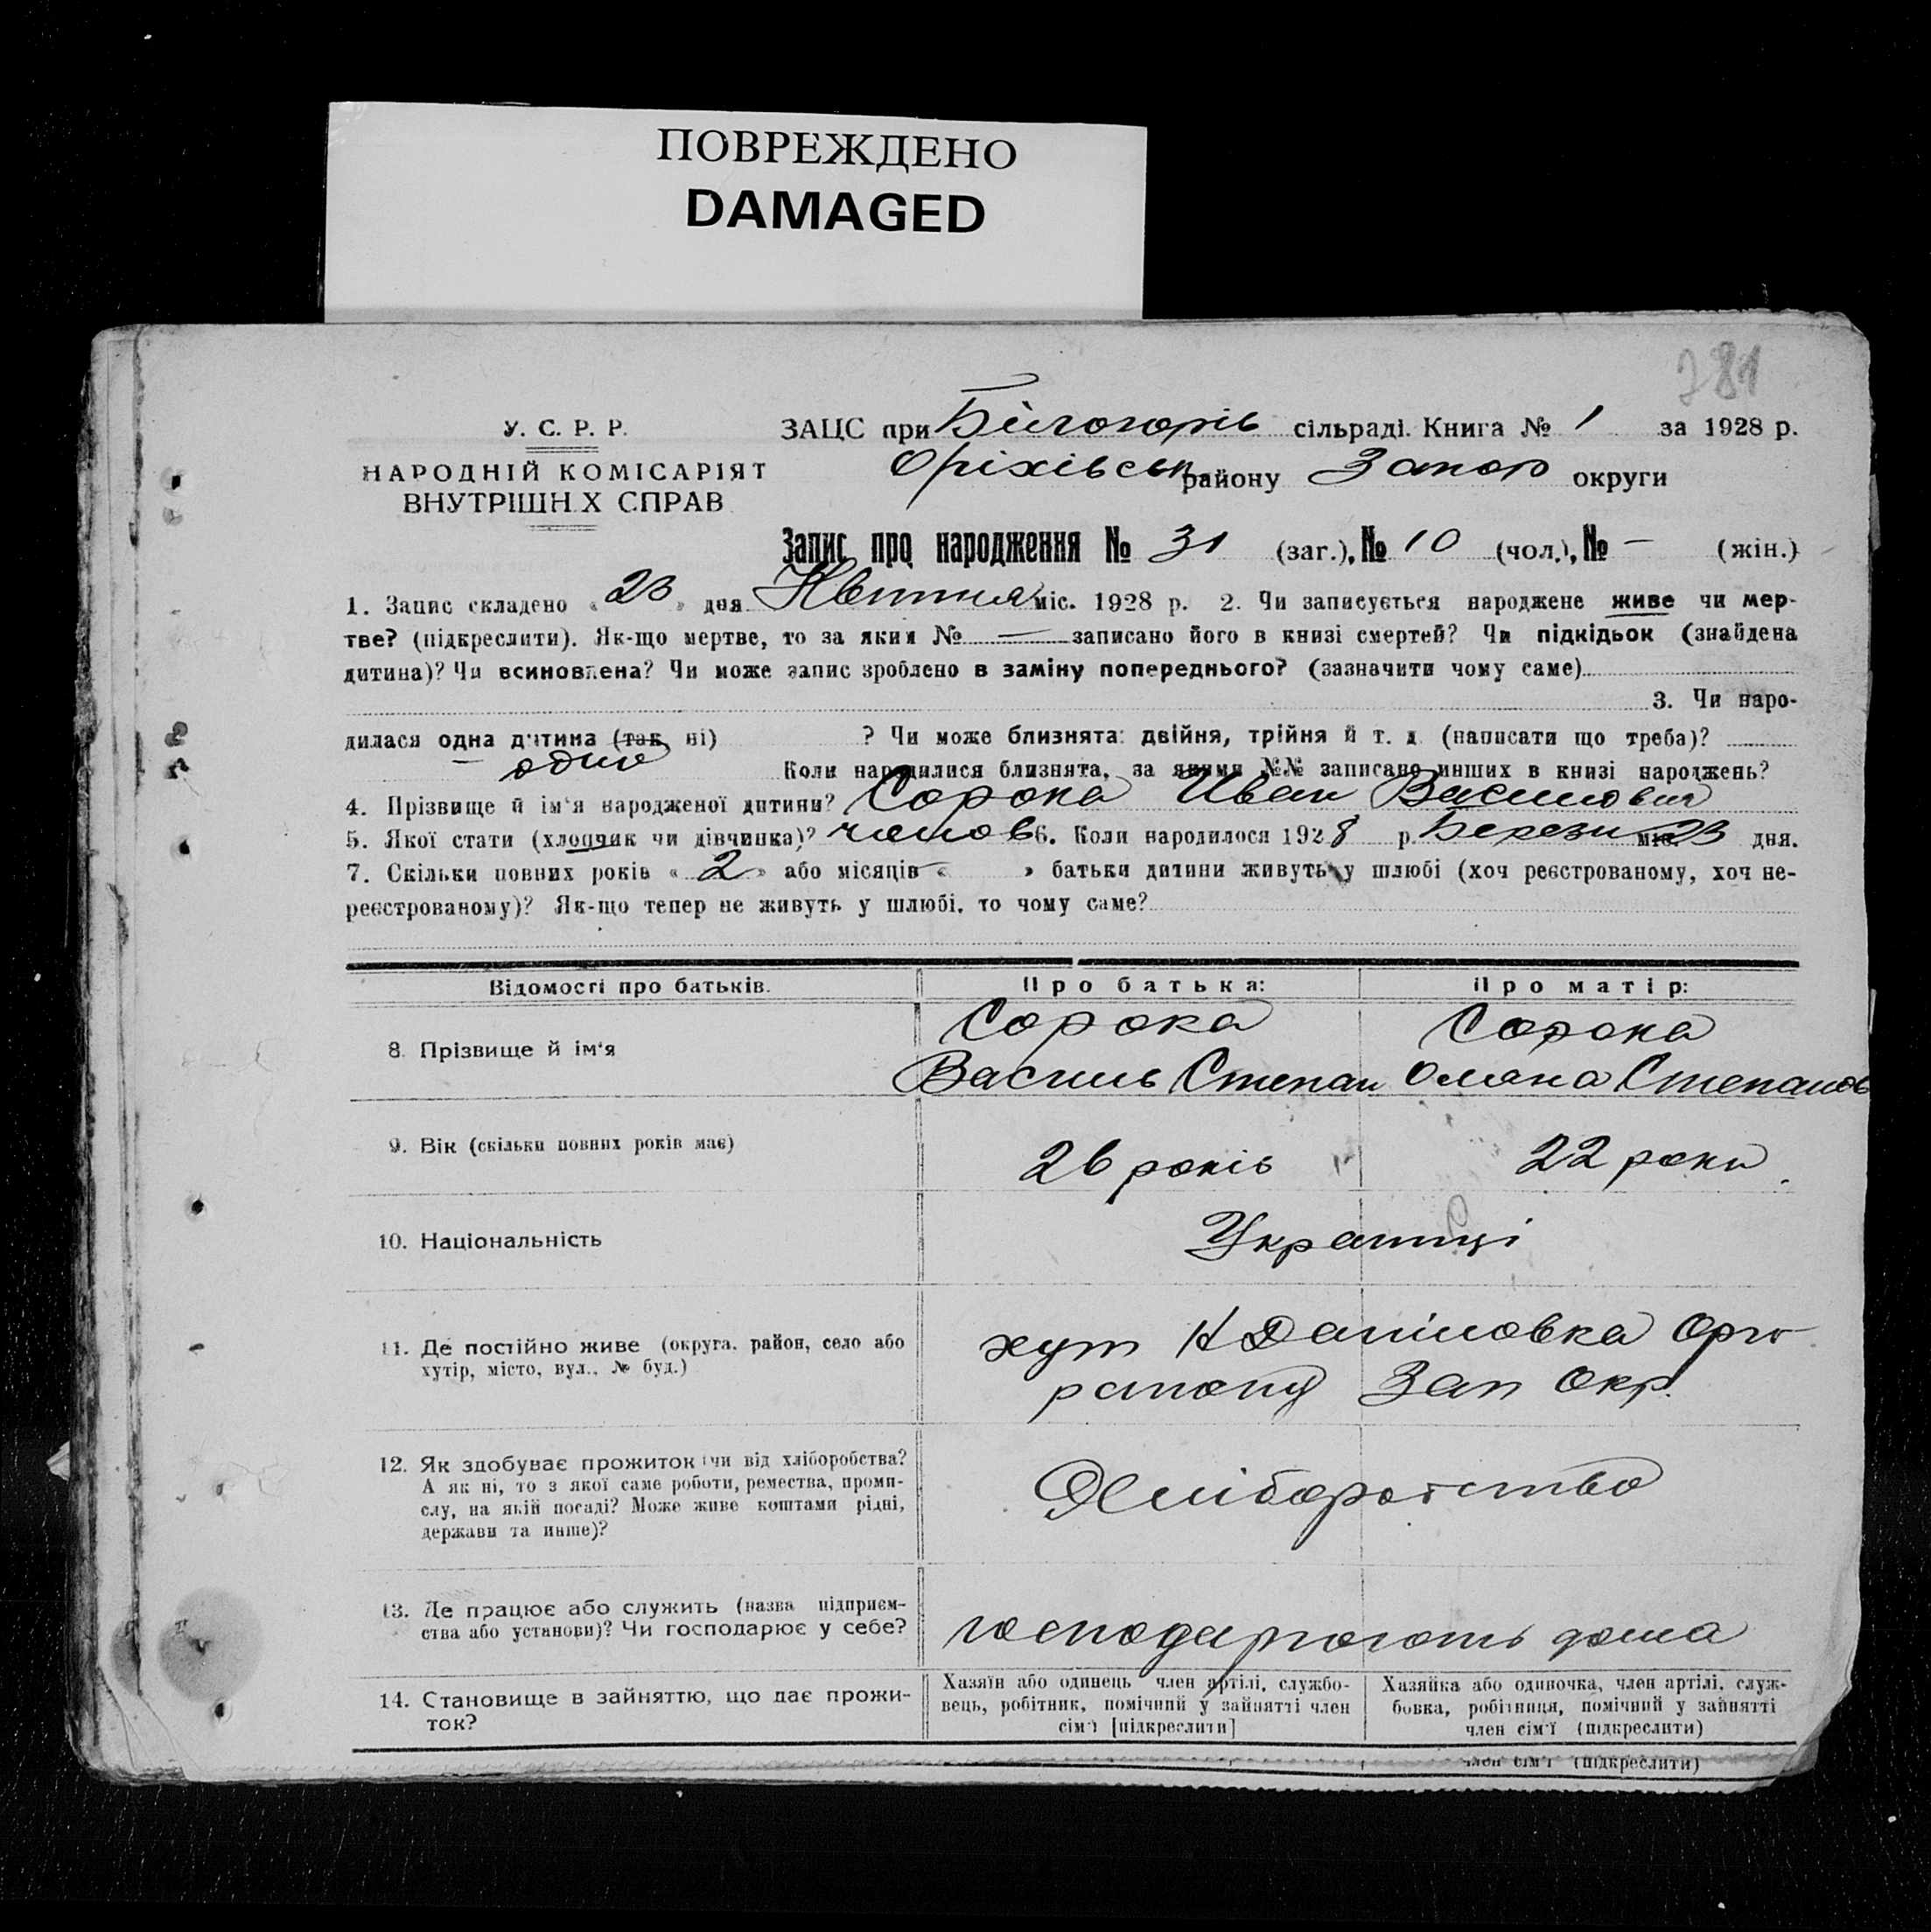 ПОВРЕЖДЕНО
DAMAGED
281
У. С. Р. Р.
НАРОДНІЙ КОМІСАРІЯТ
ВНУТРІШН.Х СПРАВ
ЗАЦС при Білогорів сільраді. Книга № 1 за 1928 р.
Оріхівськ району Запор округи
Запис про народження № 31 (заг.), № 10 (чол.), № — (жін.)
1. Запис складено « 23 » дня Квітня міс. 1928 р. 2. Чи записується народжене живе чи мер-
тве? (підкреслити). Як-що мертве, то за яким № — записано його в книзі смертей? Чи підкідьок (знайдена
дитина)? Чи всиновлена? Чи може запис зроблено в заміну попереднього? (зазначити чому саме)
3. Чи наро-
дилася одна дитина (так, ні) ? Чи може близнята: двійня, трійня й т. д. (написати що треба)?
— одно Коли народилися близнята, за якими №№ записано инших в книзі народжень?
4. Прізвище й ім'я народженої дитини? Сорока Иван Василович
5. Якої стати (хлопчик чи дівчинка)? чолов 6. Коли народилося 1928 р. Березн міс. 23 дня.
7. Скільки повних років « 2 » або місяців « » батьки дитини живуть у шлюбі (хоч реєстрованому, хоч не-
реєстрованому)? Як-що тепер не живуть у шлюбі, то чому саме?
Відомості про батьків.
Про батька:
Про матір:
8. Прізвище й ім'я
Сорока
Василь Степан
Сорока
Оляна Степанов
9. Вік (скільки повних років має)
26 років
22 роки
10. Національність
Українці
11. Де постійно живе (округа, район, село або
хутір, місто, вул., № буд.)
хут Н Даніловка Оріх
району Зап Окр.
12. Як здобуває прожиток (чи від хліборобства?
А як ні, то з якої саме роботи, ремества, проми-
слу, на якій посаді? Може живе коштами рідні,
держави та инше)?
Хліборотство
13. Де працює або служить (назва підприєм-
ства або установи)? Чи господарює у себе?
господарюють дома
14. Становище в зайняттю, що дає прожи-
ток?
Хазяїн або одинець член артілі, службо-
вець, робітник, помічний у зайнятті член
сім'ї [підкреслити]
Хазяйка або одиночка, член артілі, служ-
бовка, робітниця, помічний у зайнятті
член сім'ї (підкреслити)
член сім'ї (підкреслити)